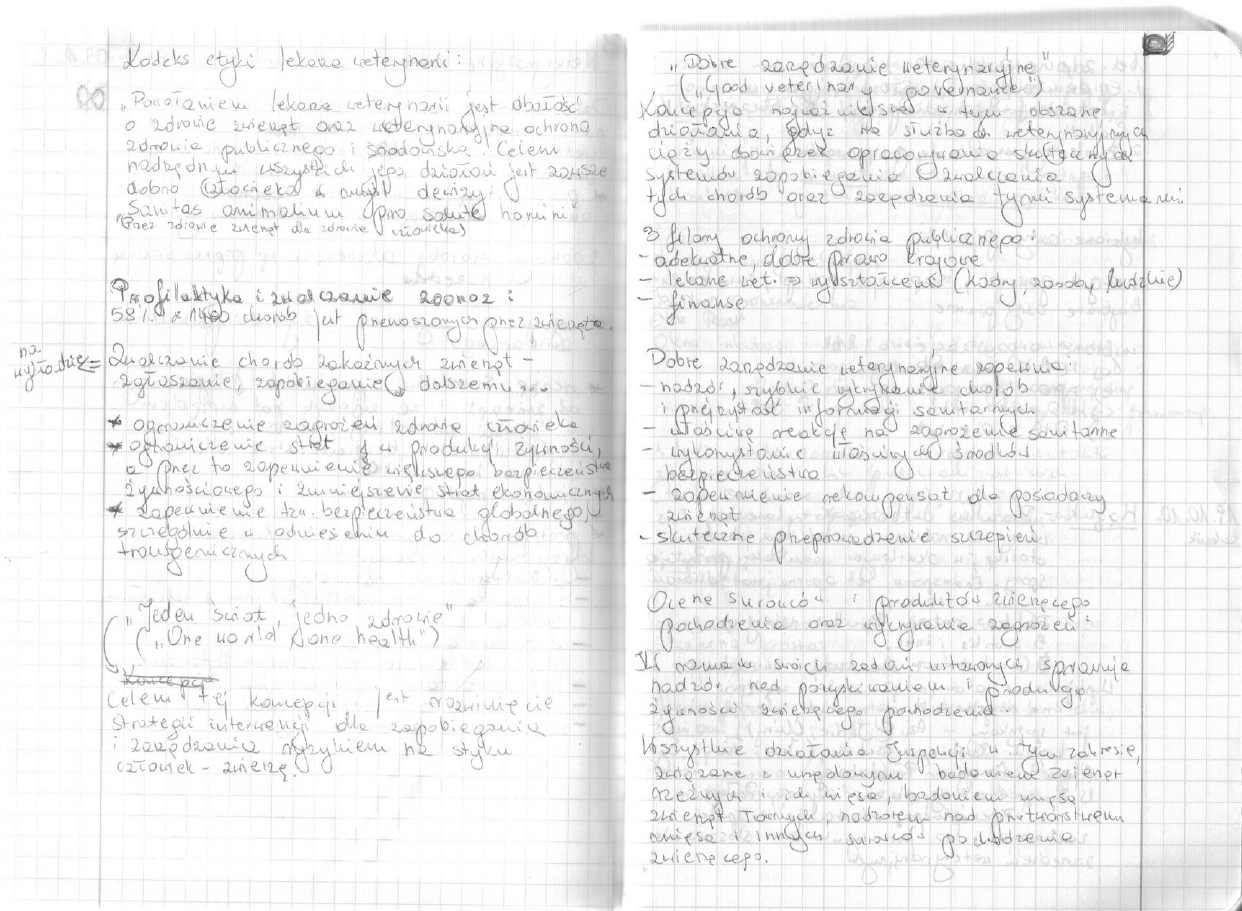 Kodeks etyki lekarza weterynarii:
"Powołaniem lekarza weterynarii jest dbałość
o zdrowie zwierząt oraz weterynaryjna ochrona
zdrowia publicznego i środowiska. Celem
nadrzędnym wszystkich jego działań jest zawsze
dobro człowieka w myśl dewizy:
"Sanitas animalium pro salute homini"
(Przez zdrowie zwierząt dla zdrowia człowieka)
Profilaktyka i zwalczanie zoonoz:
58% z 1400 chorób jest przenoszonych przez zwierzęta.
na wykładzie =
Zwalczanie chorób zakaźnych zwierząt -
zgłaszanie, zapobieganie dalszemu ...
* ograniczenie zagrożeń zdrowia człowieka
* ograniczenie strat w produkcji żywności,
a przez to zapewnienie większego bezpieczeństwa
żywnościowego i zmniejszenie strat ekonomicznych
* zapewnienie tzw. bezpieczeństwa globalnego,
szczególnie w odniesieniu do chorób
transgenicznych
"Jeden świat, jedno zdrowie"
("One world, one health")
Koncepcja
Celem tej koncepcji jest rozwinięcie
strategii interwencji dla zapobiegania
i zarządzania ryzykiem na styku
człowiek - zwierzę.
"Dobre zarządzanie weterynaryjne"
("Good veterinary governance")
Koncepcja najważniejsza w tym obszarze
działania, gdyż na służbach weterynaryjnych
ciąży obowiązek opracowywania skutecznych
systemów zapobiegania i zwalczania
tych chorób oraz zarządzania tymi systemami
3 filary ochrony zdrowia publicznego:
- adekwatne, dobre prawo krajowe
- lekarze wet. → wykształceni (kadry, zasoby ludzkie)
- finanse
Dobre zarządzanie weterynaryjne zapewnia:
- nadzór, szybkie wykrywanie chorób
i przejrzystość informacji sanitarnych
- właściwą reakcję na zagrożenie sanitarne
- wykorzystanie właściwych środków
bezpieczeństwa
- zapewnienie rekompensat dla posiadaczy
zwierząt
- skuteczne przeprowadzenie szczepień
Ocena surowców i produktów zwierzęcego
pochodzenia oraz wykrywanie zagrożeń:
IW w ramach swoich zadań ustawowych sprawuje
nadzór nad pozyskiwaniem i produkcją
żywności zwierzęcego pochodzenia
Wszystkie działania Inspekcji w tym zakresie,
związane z urzędowym badaniem zwierząt
rzeźnych i ich mięsa, badaniem mięsa
zwierząt łownych, nadzorem nad przetwórstwem
mięsa i innych surowców pochodzenia
zwierzęcego.